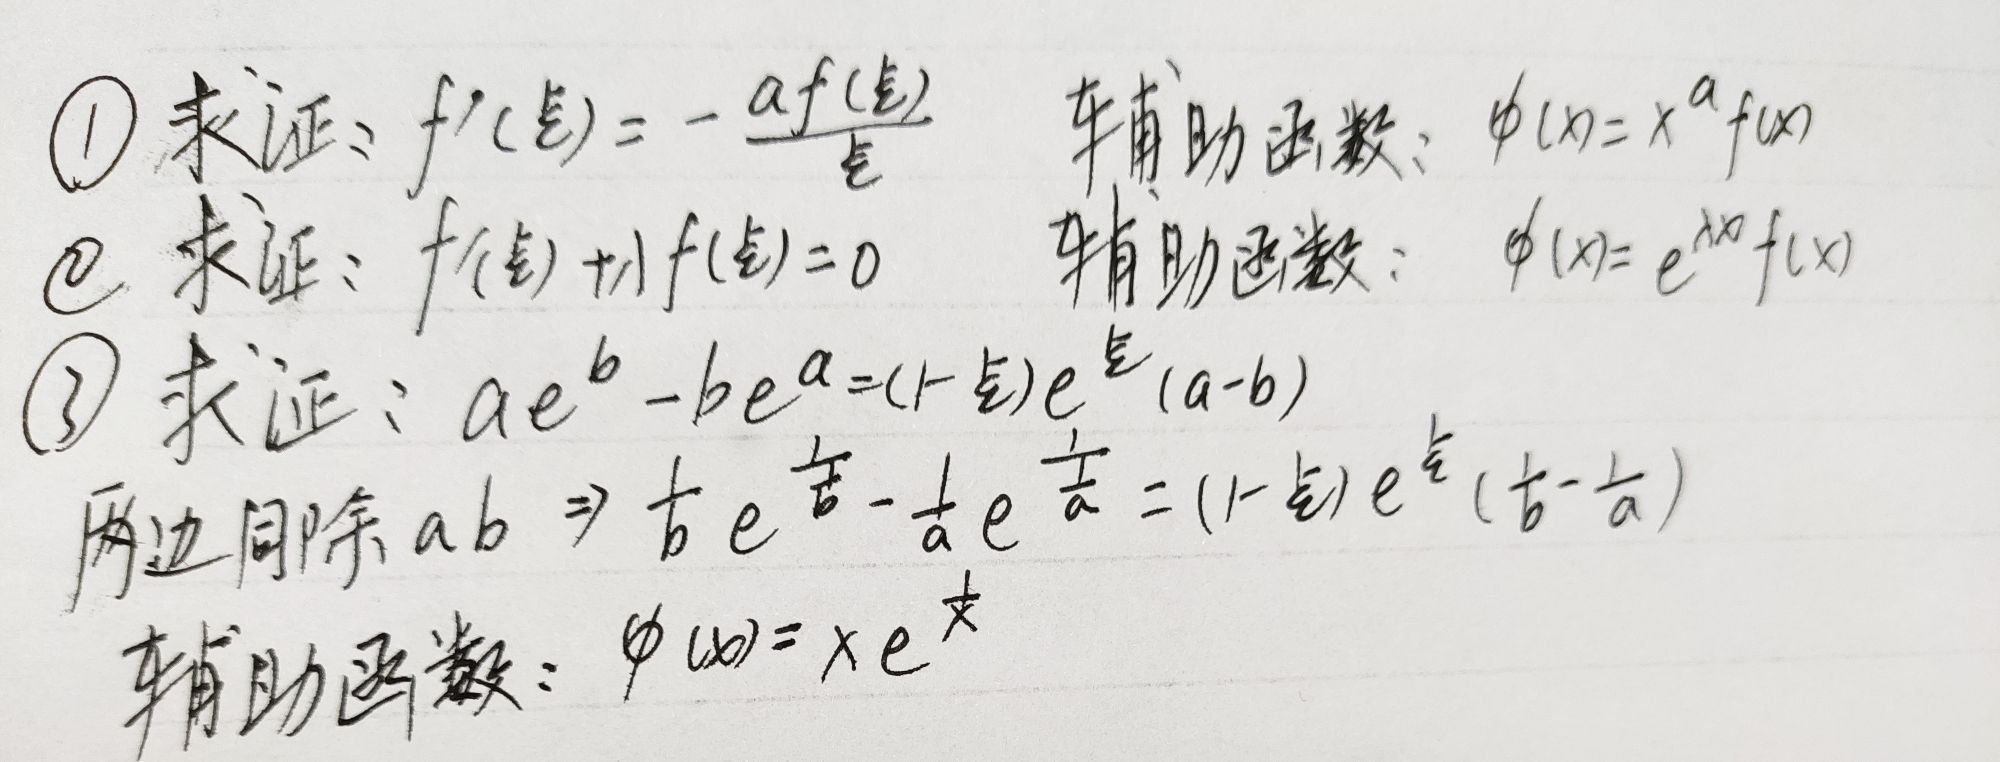 ① 求证: f'(ξ) = - af(ξ)/ξ 辅助函数: φ(x) = x^a f(x)
② 求证: f'(ξ) + λf(ξ) = 0 辅助函数: φ(x) = e^{λx} f(x)
③ 求证: ae^b - be^a = (1-ξ)e^ξ (a-b)
两边同除ab ⇒ 1/b e^{1/b} - 1/a e^{1/a} = (1-ξ)e^ξ (1/b - 1/a)
辅助函数: φ(x) = xe^{1/x}